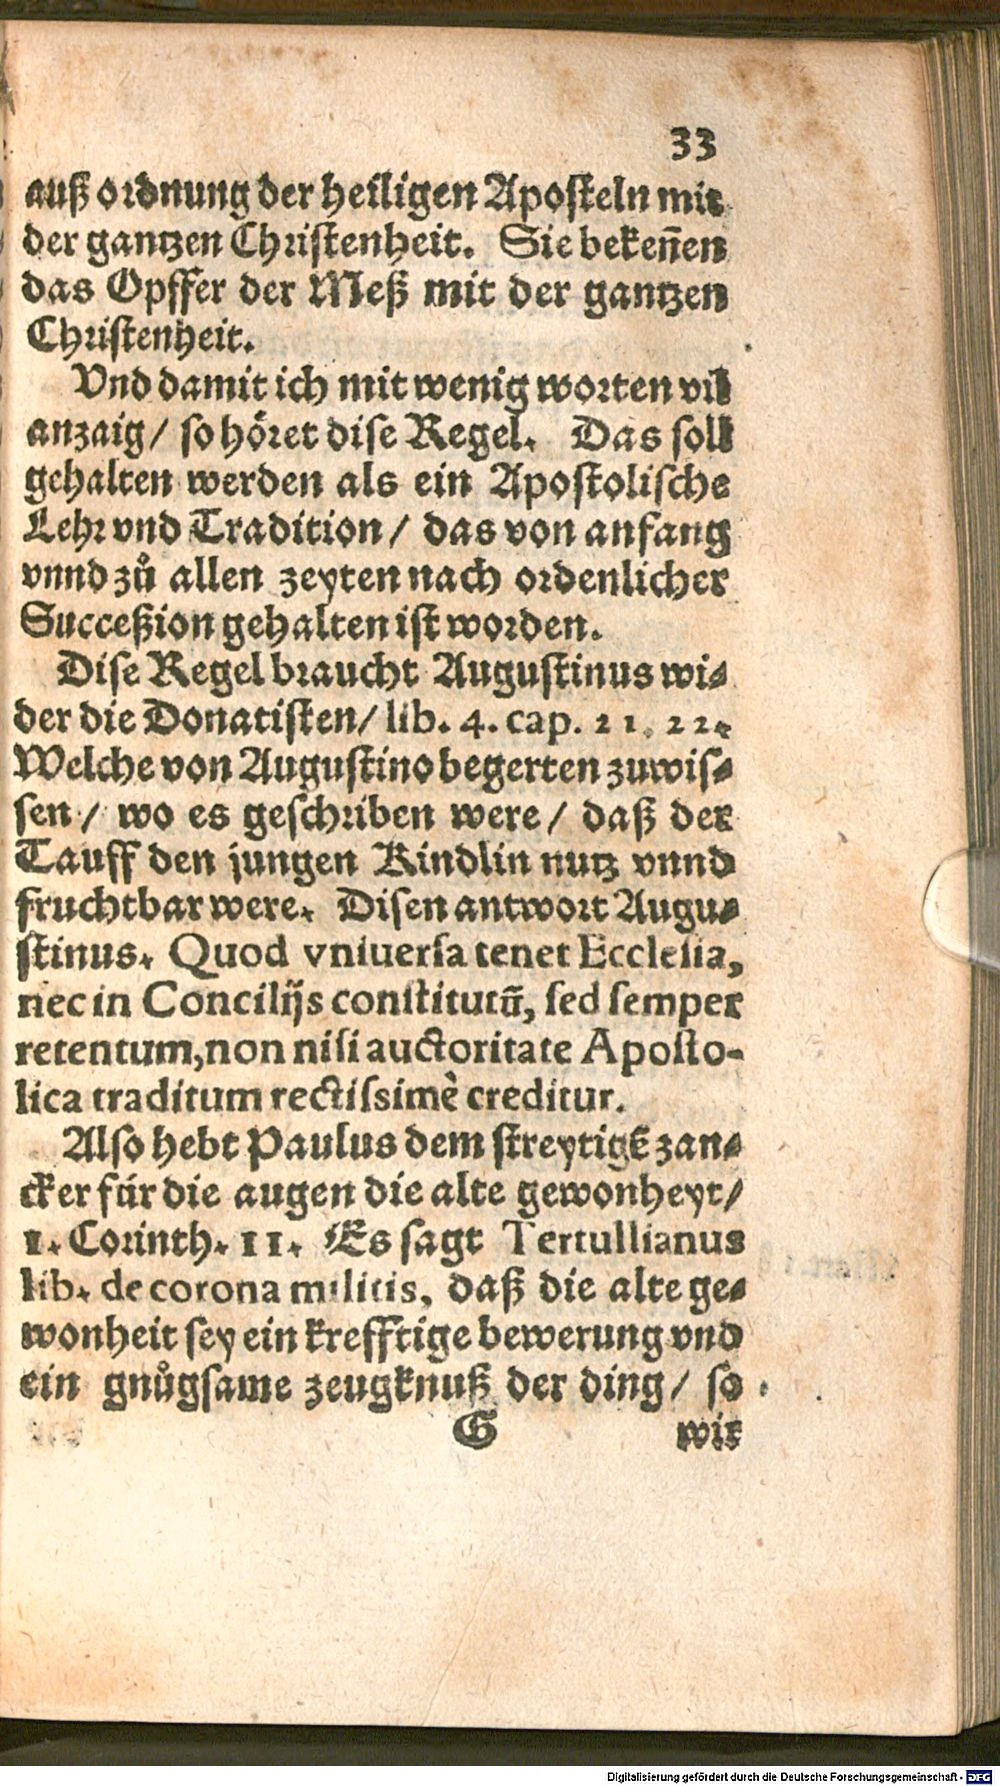 33
auß ordnung der heiligen Aposteln mit
der gantzen Christenheit. Sie bekeñen
das Opffer der Meß mit der gantzen
Christenheit.
Vnd damit ich mit wenig worten vil
anzaig/ so höret dise Regel. Das soll
gehalten werden als ein Apostolische
Lehr vnd Tradition/ das von anfang
vnnd zů allen zeyten nach ordenlicher
Succeßion gehalten ist worden.
Dise Regel braucht Augustinus wi-
der die Donatisten/ lib. 4. cap. 21. 22.
Welche von Augustino begerten zuwis-
sen/ wo es geschriben were/ daß der
Tauff den jungen Kindlin nutz vnnd
fruchtbar were. Disen antwort Augu-
stinus. Quod vniuersa tenet Ecclesia,
nec in Concilijs constitutũ, sed semper
retentum, non nisi auctoritate Aposto-
lica traditum rectissimè creditur.
Also hebt Paulus dem streytigẽ zan-
cker für die augen die alte gewonheyt/
1. Corinth. 11. Es sagt Tertullianus
lib. de corona militis, daß die alte ge-
wonheit sey ein krefftige bewerung vnd
ein gnůgsame zeugknuß der ding/ so
G wir
Digitalisierung gefördert durch die Deutsche Forschungsgemeinschaft - DFG